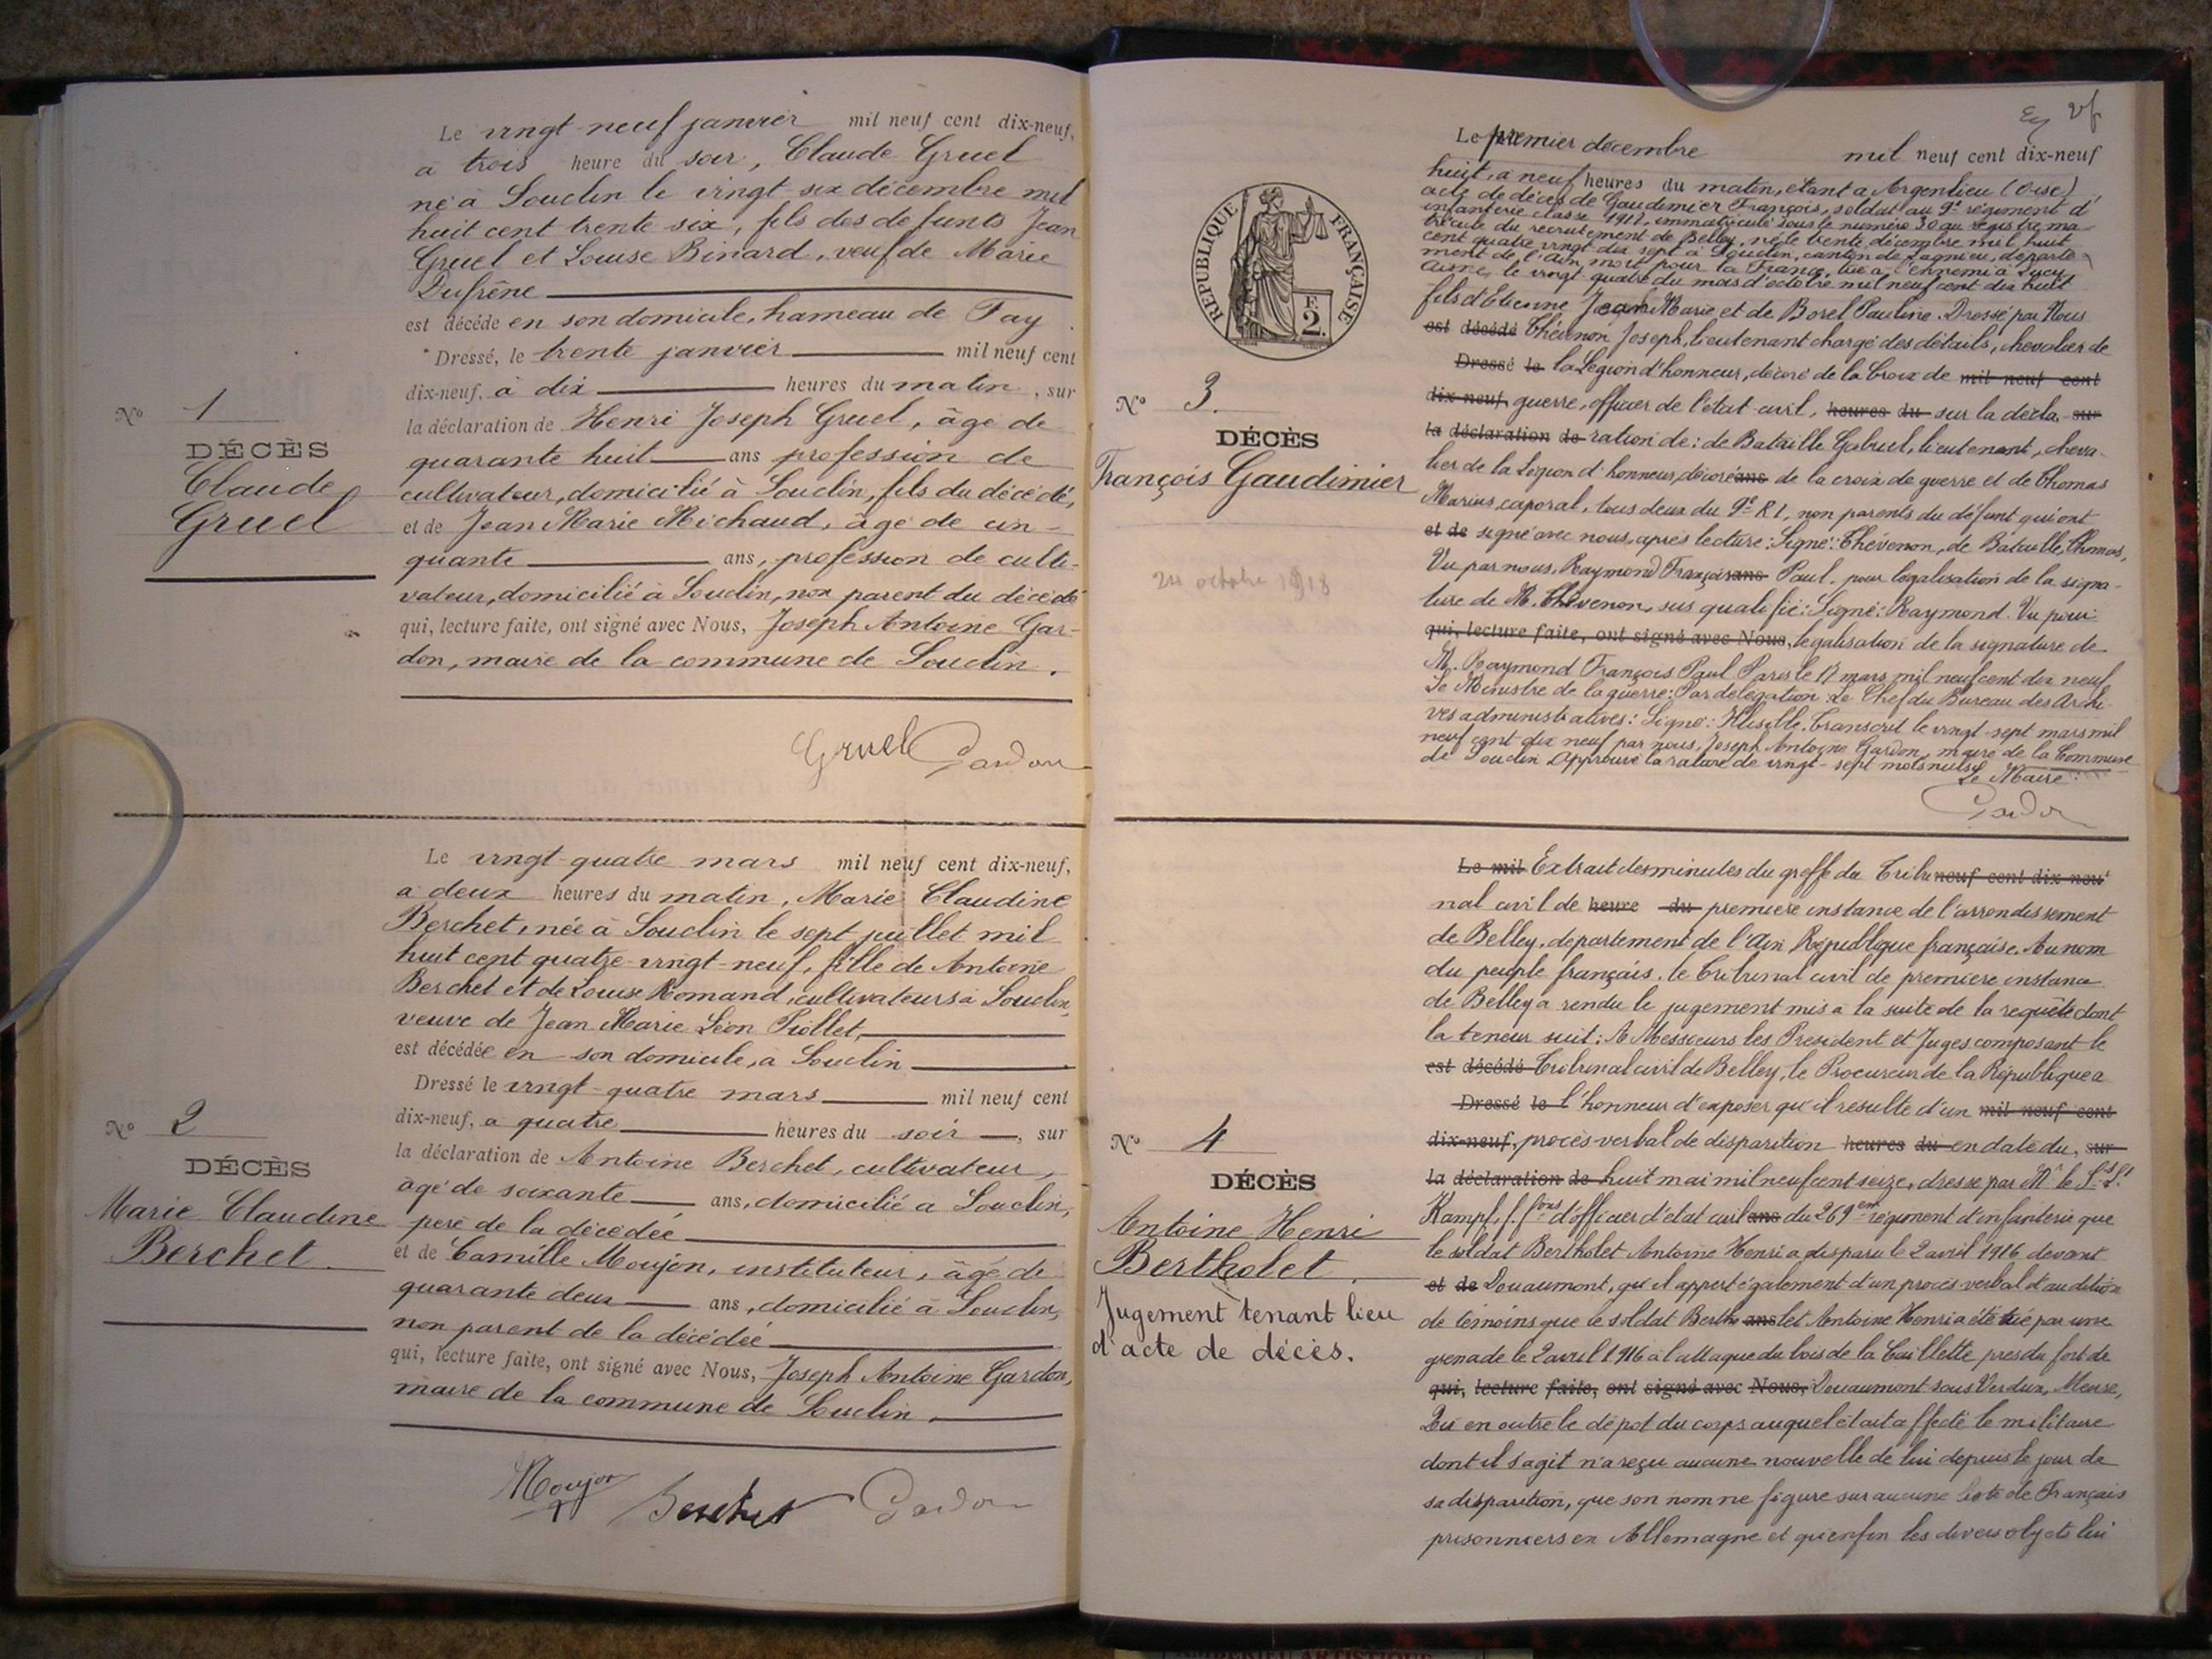 Le vingt-neuf janvier mil neuf cent dix-neuf,
à trois heure du soir, Claude Gruel
né à Souclin le vingt-six décembre mil
huit cent trente six, fils des défunts Jean
Gruel et Louise Binard, veuf de Marie
Dufrêne
est décédé en son domicile, hameau de Fay
Dressé, le trente janvier mil neuf cent
dix-neuf, à dix heures du matin, sur
la déclaration de Henri Joseph Gruel, âgé de
quarante huit ans profession de
cultivateur, domicilié à Souclin, fils du décédé,
et de Jean Marie Michaud, âgé de cin-
quante ans, profession de culti-
vateur, domicilié à Souclin, non parent du décédé
qui, lecture faite, ont signé avec Nous, Joseph Antoine Gar-
don, maire de la commune de Souclin.
Nº 1
DÉCÈS
Claude
Gruel
Gruel Gardon
Le vingt-quatre mars mil neuf cent dix-neuf,
à deux heures du matin, Marie Claudine
Berchet, née à Souclin le sept juillet mil
huit cent quatre-vingt-neuf, fille de Antoine
Berchet et de Louise Romand, cultivateurs à Souclin,
veuve de Jean Marie Léon Piollet,
est décédée en son domicile, à Souclin
Dressé le vingt-quatre mars mil neuf cent
dix-neuf, à quatre heures du soir, sur
la déclaration de Antoine Berchet, cultivateur,
âgé de soixante ans, domicilié à Souclin,
père de la décédée
et de Camille Moujon, instituteur, âgé de
quarante deux ans, domicilié à Souclin,
non parent de la décédée
qui, lecture faite, ont signé avec Nous, Joseph Antoine Gardon,
maire de la commune de Souclin.
Nº 2
DÉCÈS
Marie Claudine
Berchet
Moujon Berchet Gardon
RÉPUBLIQUE FRANÇAISE
F.
2.
Le premier décembre mil neuf cent dix-neuf
huit, à neuf heures du matin, étant à Argenlieu (Oise)
acte de décès de Gaudimier François, soldat au 9e régiment d'
infanterie classe 1917, immatriculé sous le numéro 30 au registre ma-
tricule du recrutement de Belley, né le trente décembre mil huit
cent quatre vingt dix sept à Souclin, canton de Lagnieu, départe-
ment de l'Ain, mort pour la France, tué à l'ennemi à Sucy
Aisne, le vingt quatre du mois d'octobre mil neuf cent dix huit
fils d'Etienne Jean Marie et de Borel Pauline. Dressé par Nous
est décédé Thévenon Joseph, lieutenant chargé des détails, chevalier de
Dressé le la Légion d'honneur, décoré de la Croix de mil neuf cent
dix-neuf, guerre, officier de l'état civil, heures du sur la décla- sur
la déclaration de ration de: de Bataille Gabriel, lieutenant, cheva-
lier de la Légion d'honneur, décoré ans de la croix de guerre et de Thomas
Marius, caporal, tous deux du 9e R I, non parents du défunt qui ont
et de signé avec nous, après lecture: Signé: Thévenon, de Bataille, Thomas,
Vu par nous, Raymond François ans Paul, pour légalisation de la signa-
ture de M. Thévenon, sus qualifié: Signé: Raymond. Vu pour
qui, lecture faite, ont signé avec Nous, légalisation de la signature de
M. Raymond François Paul Paris le 17 mars mil neuf cent dix neuf,
Le Ministre de la guerre: Par délégation Le Chef du Bureau des Archi-
ves administratives: Signé: Transcrit le vingt-sept mars mil
neuf cent dix neuf par nous, Joseph Antoine Gardon, maire de la Commune
de Souclin Approuvé la rature de vingt-sept mots nuls
Le Maire:
Gardon
Nº 3.
DÉCÈS
François Gaudimier
24 octobre 1918
Le mil Extrait des minutes du greffe du Tribu neuf cent dix-neuf
nal civil de heure du première instance de l'arrondissement
de Belley, département de l'Ain République française. Au nom
du peuple français, le Tribunal civil de première instance
de Belley a rendu le jugement mis à la suite de la requête dont
la teneur suit: A Messieurs les Président et Juges composant le
est décédé Tribunal civil de Belley, le Procureur de la République a
Dressé le l'honneur d'exposer qu'il résulte d'un mil neuf cent
dix-neuf, procès-verbal de disparition heures du en date du, sur
la déclaration de huit mai mil neuf cent seize, dressé par Mr le S.s L.t
Kampf, f. f.ons d'officier d'état civil ans du 269em régiment d'infanterie que
le soldat Bertholet Antoine Henri a disparu le 2 avril 1916 devant
et de Douaumont, qu'il appert également d'un procès-verbal d'audition
de témoins que le soldat Bertho ans let Antoine Henri a été tué par une
grenade le 2 avril 1916 à l'attaque du bois de la Caillette près du fort de
qui, lecture faite, ont signé avec Nous, Douaumont sous Verdun, Meuse,
Qu'en outre le dépôt du corps auquel était affecté le militaire
dont il s'agit n'a reçu aucune nouvelle de lui depuis le jour de
sa disparition, que son nom ne figure sur aucune liste de Français
prisonniers en Allemagne et qu'enfin les divers objets lui
Nº 4
DÉCÈS
Antoine Henri
Bertholet
Jugement tenant lieu
d'acte de décès.